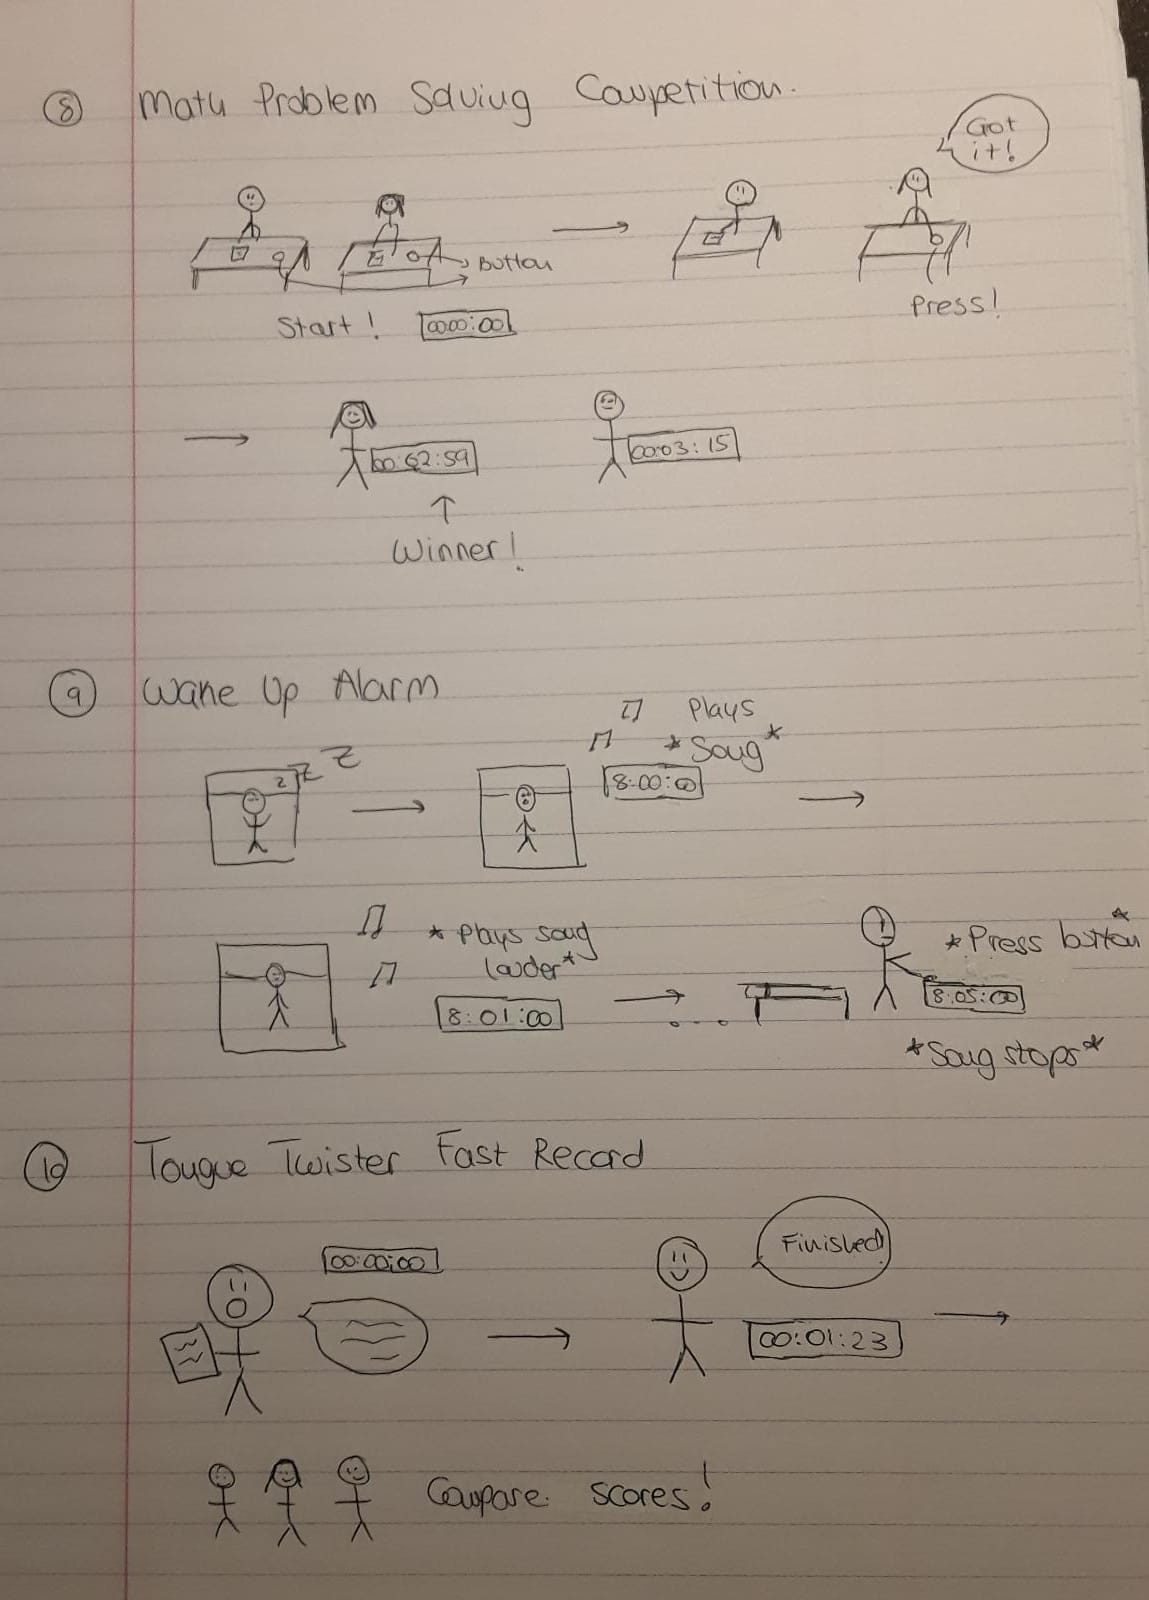 ⑧ Math Problem Solving Competition.
Got
it!
Button
Start! 00:00:00
Press!
00:02:59
00:03:15
↑
Winner!
⑨ Wake Up Alarm
Plays
*Song*
z z Z
8:00:00
*Plays song
louder*
8:01:00
*Press button*
8:05:00
*Song stops*
⑩ Tongue Twister Fast Record
00:00:00
Finished!
00:01:23
Compare scores!